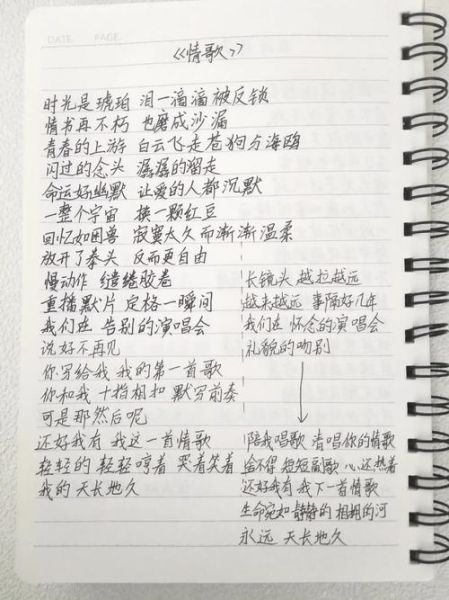 DATE PAGE
《情歌》
时光是琥珀 泪一滴滴 被反锁
情书再不朽 也磨成沙漏
青春的上游 白云飞走苍狗与海鸥
闪过的念头 潺潺的溜走
命运好幽默 让爱的人都沉默
一整个宇宙 换一颗红豆
回忆如困兽 寂寞太久而渐渐温柔
放开了拳头 反而更自由
慢动作 缱绻胶卷
重播默片 定格一瞬间
我们在 告别的演唱会
说好不再见
你写给我 我的第一首歌
你和我 十指相扣 默写前奏
可是那然后呢
还好我有 我这一首情歌
轻轻的 轻轻哼着 哭着笑着
我的 天长地久
长镜头 越拉越远
越来越远 事隔好几年
我们在 怀念的演唱会
礼貌的吻别
陪我唱歌 清唱你的情歌
舍不得 短短副歌 心还热着
还好我有 我下一首情歌
生命宛如 静静的 相拥的河
永远 天长地久